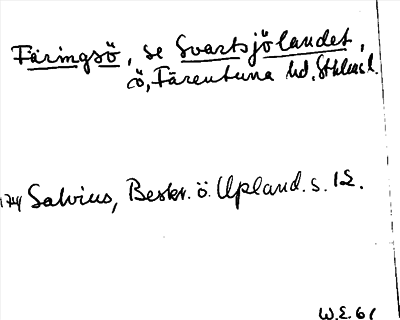 Färingsö, se Svartsjölandet,
ö, Färentuna hd, Sthlms l.
1741 Salvius, Beskr. ö. Upland. s. 12.
W.E. 61